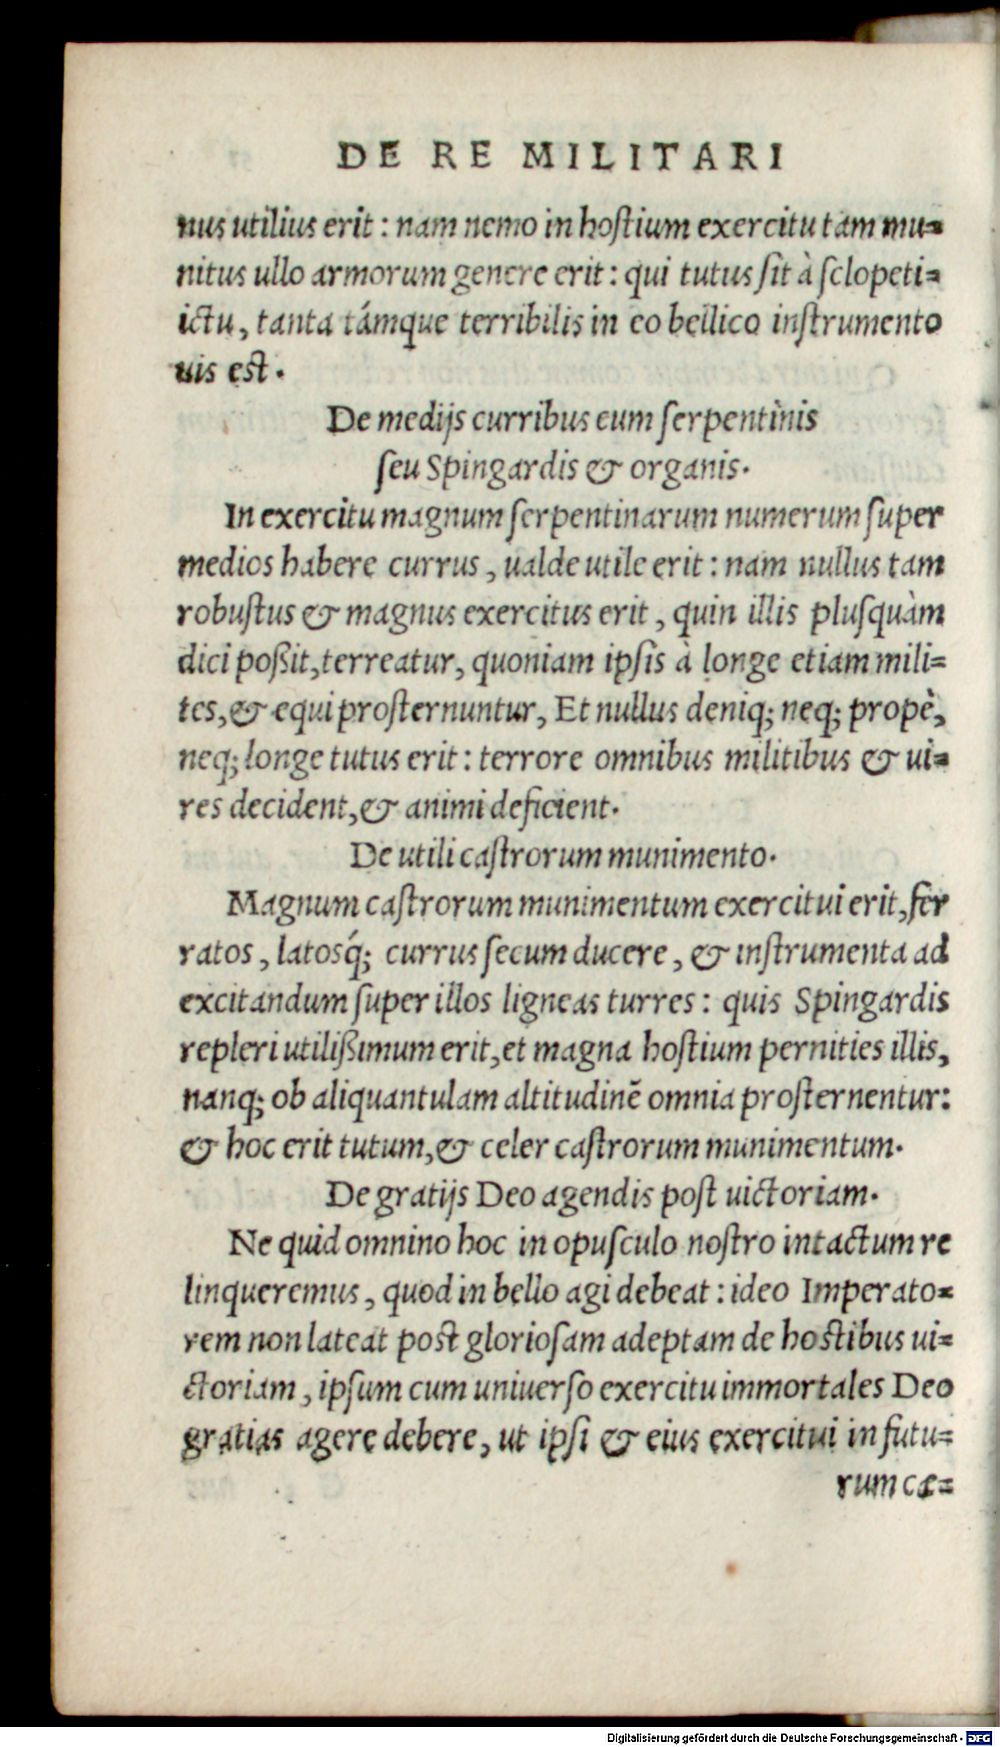 DE RE MILITARI
nus utilius erit : nam nemo in hoſtium exercitu tam mu=
nitus ullo armorum genere erit : qui tutus ſit à ſclopeti=
ictu, tanta támque terribilis in eo bellico inſtrumento
uis eſt.
De medijs curribus eum ſerpentìnis
ſeu Spingardis & organis.
In exercitu magnum ſerpentinarum numerum ſuper
medios habere currus, ualde utile erit : nam nullus tam
robuſtus & magnus exercitus erit, quin illis pluſquàm
dici poßit, terreatur, quoniam ipſis à longe etiam mili=
tes, & equi proſternuntur, Et nullus deniq; neq; propè,
neq; longe tutus erit : terrore omnibus militibus & ui=
res decident, & animi deficient.
De utili caſtrorum munimento.
Magnum caſtrorum munimentum exercitui erit, fer
ratos, latosq́; currus ſecum ducere, & inſtrumenta ad
excitandum ſuper illos ligneas turres : quis Spingardis
repleri utilißimum erit, et magna hoſtium pernities illis,
nanq; ob aliquantulam altitudinē omnia proſternentur:
& hoc erit tutum, & celer caſtrorum munimentum.
De gratijs Deo agendis poſt uictoriam.
Ne quid omnino hoc in opuſculo noſtro intactum re
linqueremus, quod in bello agi debeat : ideo Imperato=
rem non lateat poſt glorioſam adeptam de hoſtibus ui=
ctoriam, ipſum cum uniuerſo exercitu immortales Deo
gratias agere debere, ut ipſi & eius exercitui in futu=
rum cæ=
Digitalisierung gefördert durch die Deutsche Forschungsgemeinschaft - DFG